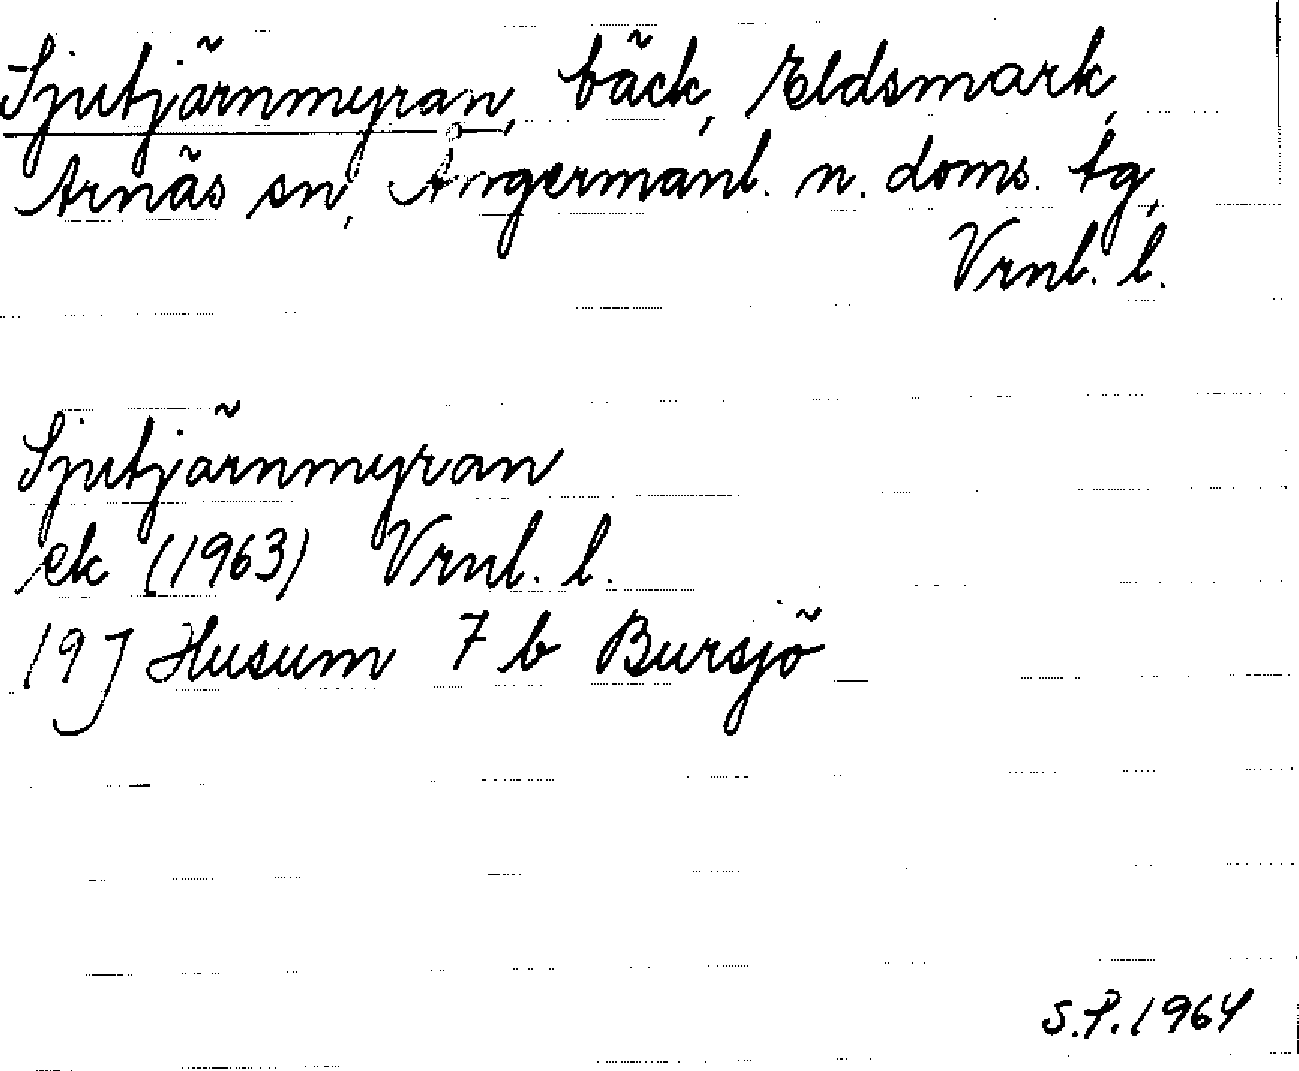 Sjutjärnmyran, bäck, Eldsmark,
Arnäs sn, Ångermanl. n. doms. tg,
Vrnl. l.
Sjutjärnmyran
ek (1963) Vrnl. l.
19J Husum 7 b Bursjö
S.P. 1964